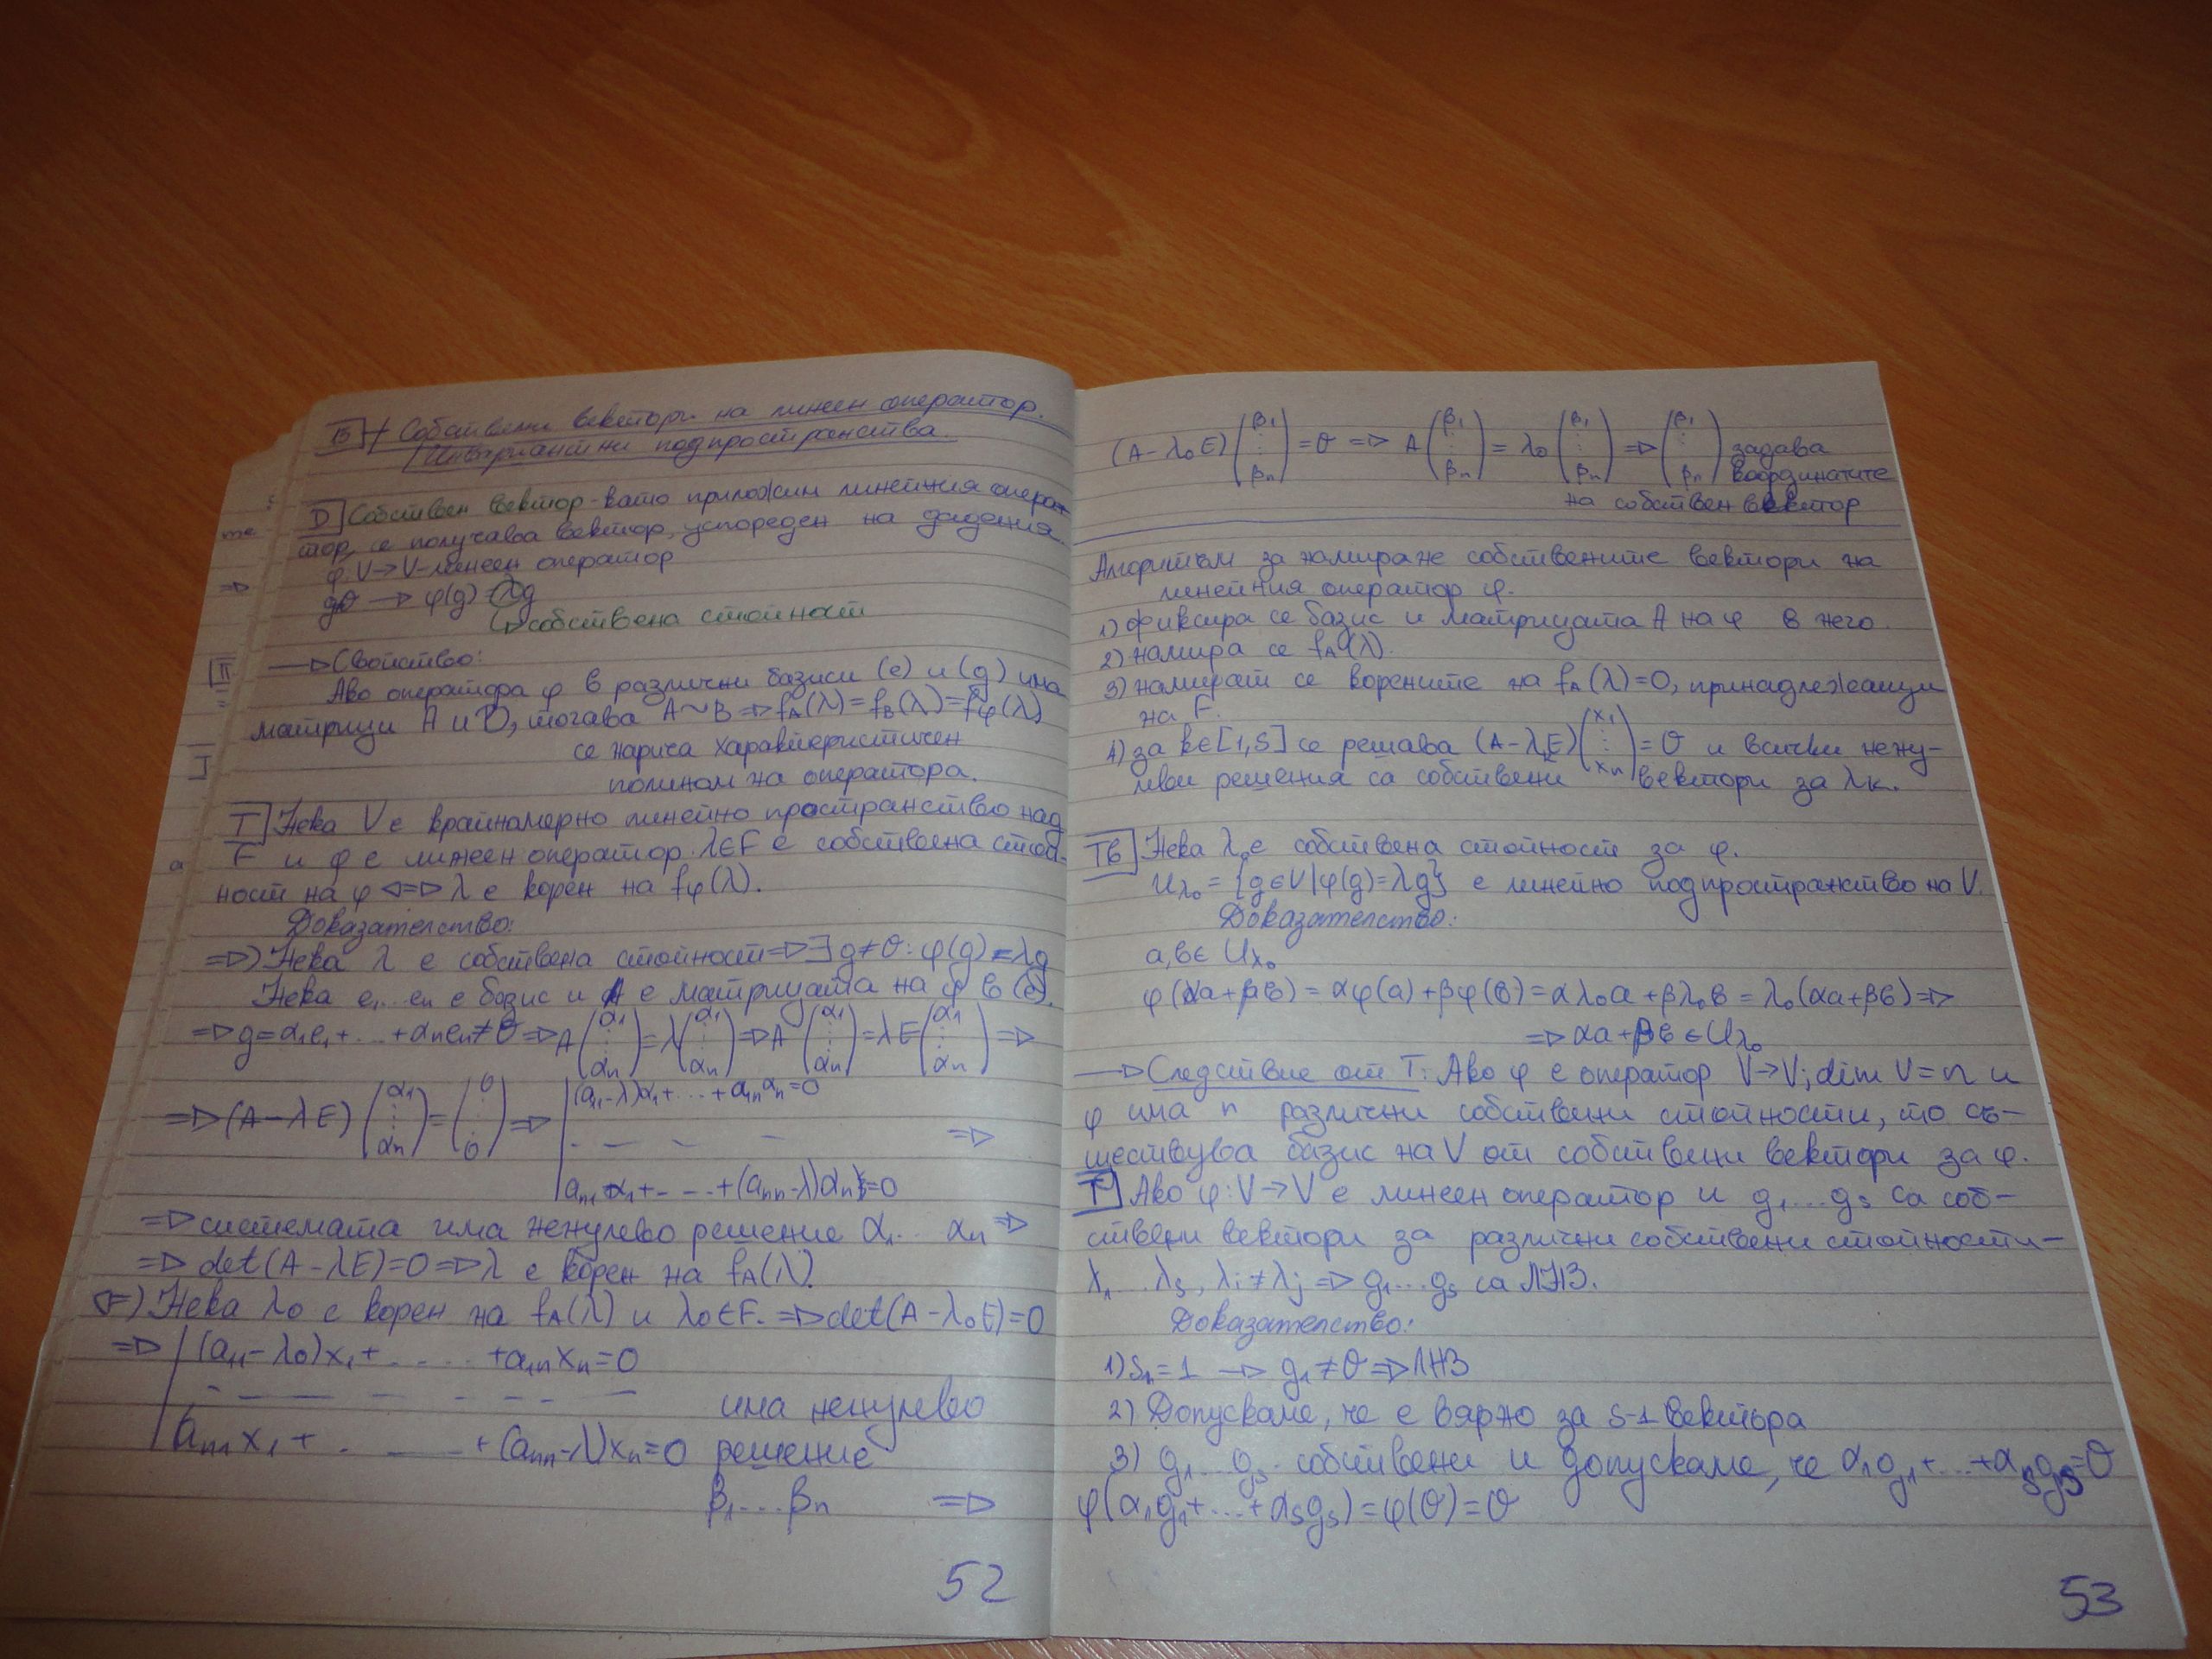 В Собствени вектори на линеен оператор.
Инвариантни подпространства.
D Собствен вектор - като приложим линейния опера-
тор, се получава вектор, успореден на дадения.
φ: V→V - линеен оператор
g≠θ → φ(g) = λg
собствена стойност
→ Свойство:
Ако оператора φ в различни базиси (e) и (g) има
матрици A и B, тогава A~B ⇒ f_A(λ) = f_B(λ) = f_φ(λ)
се нарича характеристичен
полином на оператора.
T Нека V е крайномерно линейно пространство над
F и φ е линеен оператор. λ∈F е собствена стой-
ност на φ ⇔ λ е корен на f_φ(λ).
Доказателство:
⇒) Нека λ е собствена стойност ⇒ ∃ g≠θ: φ(g) = λg
Нека e₁...eₙ е базис и A е матрицата на φ в (e).
⇒ g = α₁e₁ + ... + αₙeₙ ≠ θ ⇒ A (α₁ ⋮ αₙ) = λ (α₁ ⋮ αₙ) ⇒ A (α₁ ⋮ αₙ) = λE (α₁ ⋮ αₙ) ⇒
⇒ (A - λE) (α₁ ⋮ αₙ) = (0 ⋮ 0) ⇒ | (a₁₁-λ)α₁ + ... + a₁ₙαₙ = 0
- - - - ⇒
aₙ₁α₁ + - - .. + (aₙₙ-λ)αₙ = 0
⇒ системата има ненулево решение α₁... αₙ ⇒
⇒ det(A - λE) = 0 ⇒ λ е корен на f_A(λ).
⇐) Нека λ₀ е корен на f_A(λ) и λ₀∈F. ⇒ det(A - λ₀E) = 0
⇒ | (a₁₁ - λ₀)x₁ + ..... + a₁ₙxₙ = 0
- - - - - - - има ненулево
aₙ₁x₁ + . ---- + (aₙₙ-λ)xₙ = 0 решение
β₁...βₙ ⇒
52
(A - λ₀E) (β₁ ⋮ βₙ) = θ ⇒ A (β₁ ⋮ βₙ) = λ₀ (β₁ ⋮ βₙ) ⇒ (β₁ ⋮ βₙ) задава
координатите
на собствен вектор
Алгоритъм за намиране собствените вектори на
линейния оператор φ.
1) фиксира се базис и матрицата A на φ в него.
2) намира се f_A(λ).
3) намират се корените на f_A(λ)=0, принадлежащи
на F.
4) за k∈[1,s] се решава (A - λₖE) (x₁ ⋮ xₙ) = θ и всички нену-
леви решения са собствени вектори за λₖ.
Тв Нека λ₀ е собствена стойност за φ.
U_λ₀ = {g∈V | φ(g) = λg} е линейно подпространство на V.
Доказателство:
a, b ∈ U_λ₀
φ(αa + βb) = αφ(a) + βφ(b) = αλ₀a + βλ₀b = λ₀(αa + βb) ⇒
⇒ αa + βb ∈ U_λ₀
→ Следствие от T: Ако φ е оператор V→V; dim V = n и
φ има n различни собствени стойности, то съ-
ществува базис на V от собствени вектори за φ.
T Ако φ: V→V е линеен оператор и g₁...gₛ са соб-
ствени вектори за различни собствени стойности -
λ₁ ... λₛ, λᵢ≠λⱼ ⇒ g₁...gₛ са ЛНЗ.
Доказателство:
1) S₁ = 1 → g₁ ≠ θ ⇒ ЛНЗ
2) Допускаме, че е вярно за s-1 вектора
3) g₁...gₛ собствени и допускаме, че α₁g₁ + ... + αₛgₛ = θ
φ(α₁g₁ + ... + αₛgₛ) = φ(θ) = θ
53